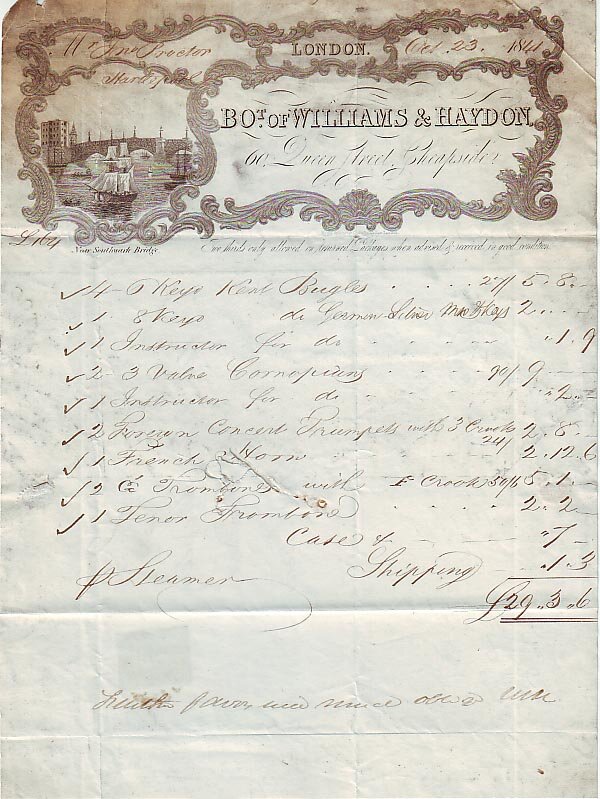 Mr Jno Proctor LONDON. Oct. 23. 1841
Hartlepool
BOT. OF WILLIAMS & HAYDON,
60, Queen Street, Cheapside
Near Southwark Bridge. Two thirds only allowed on returned Packages when advised & received in good condition
4 - 6 Keyd Kent Bugles 27/ 5 . 8 . -
1 8 Keyd do German Silver Mo & Keys 2 . -
1 Instructor for do " 1 . 9
2 - 3 Valve Cornopians 90/ 9 - -
1 Instructor for do " 2 . -
2 Foreign Concert Trumpets with 3 Crooks 24/ 2 . 8 . -
1 French Horn 2 . 12 . 6
2 Trombone with F Crook 50/6 5 . 1 -
1 Tenor Trombone 2 . 2 . -
Case & " 7 -
p Steamer Shipping " 1 . 3
£29 " 3 " 6
favor